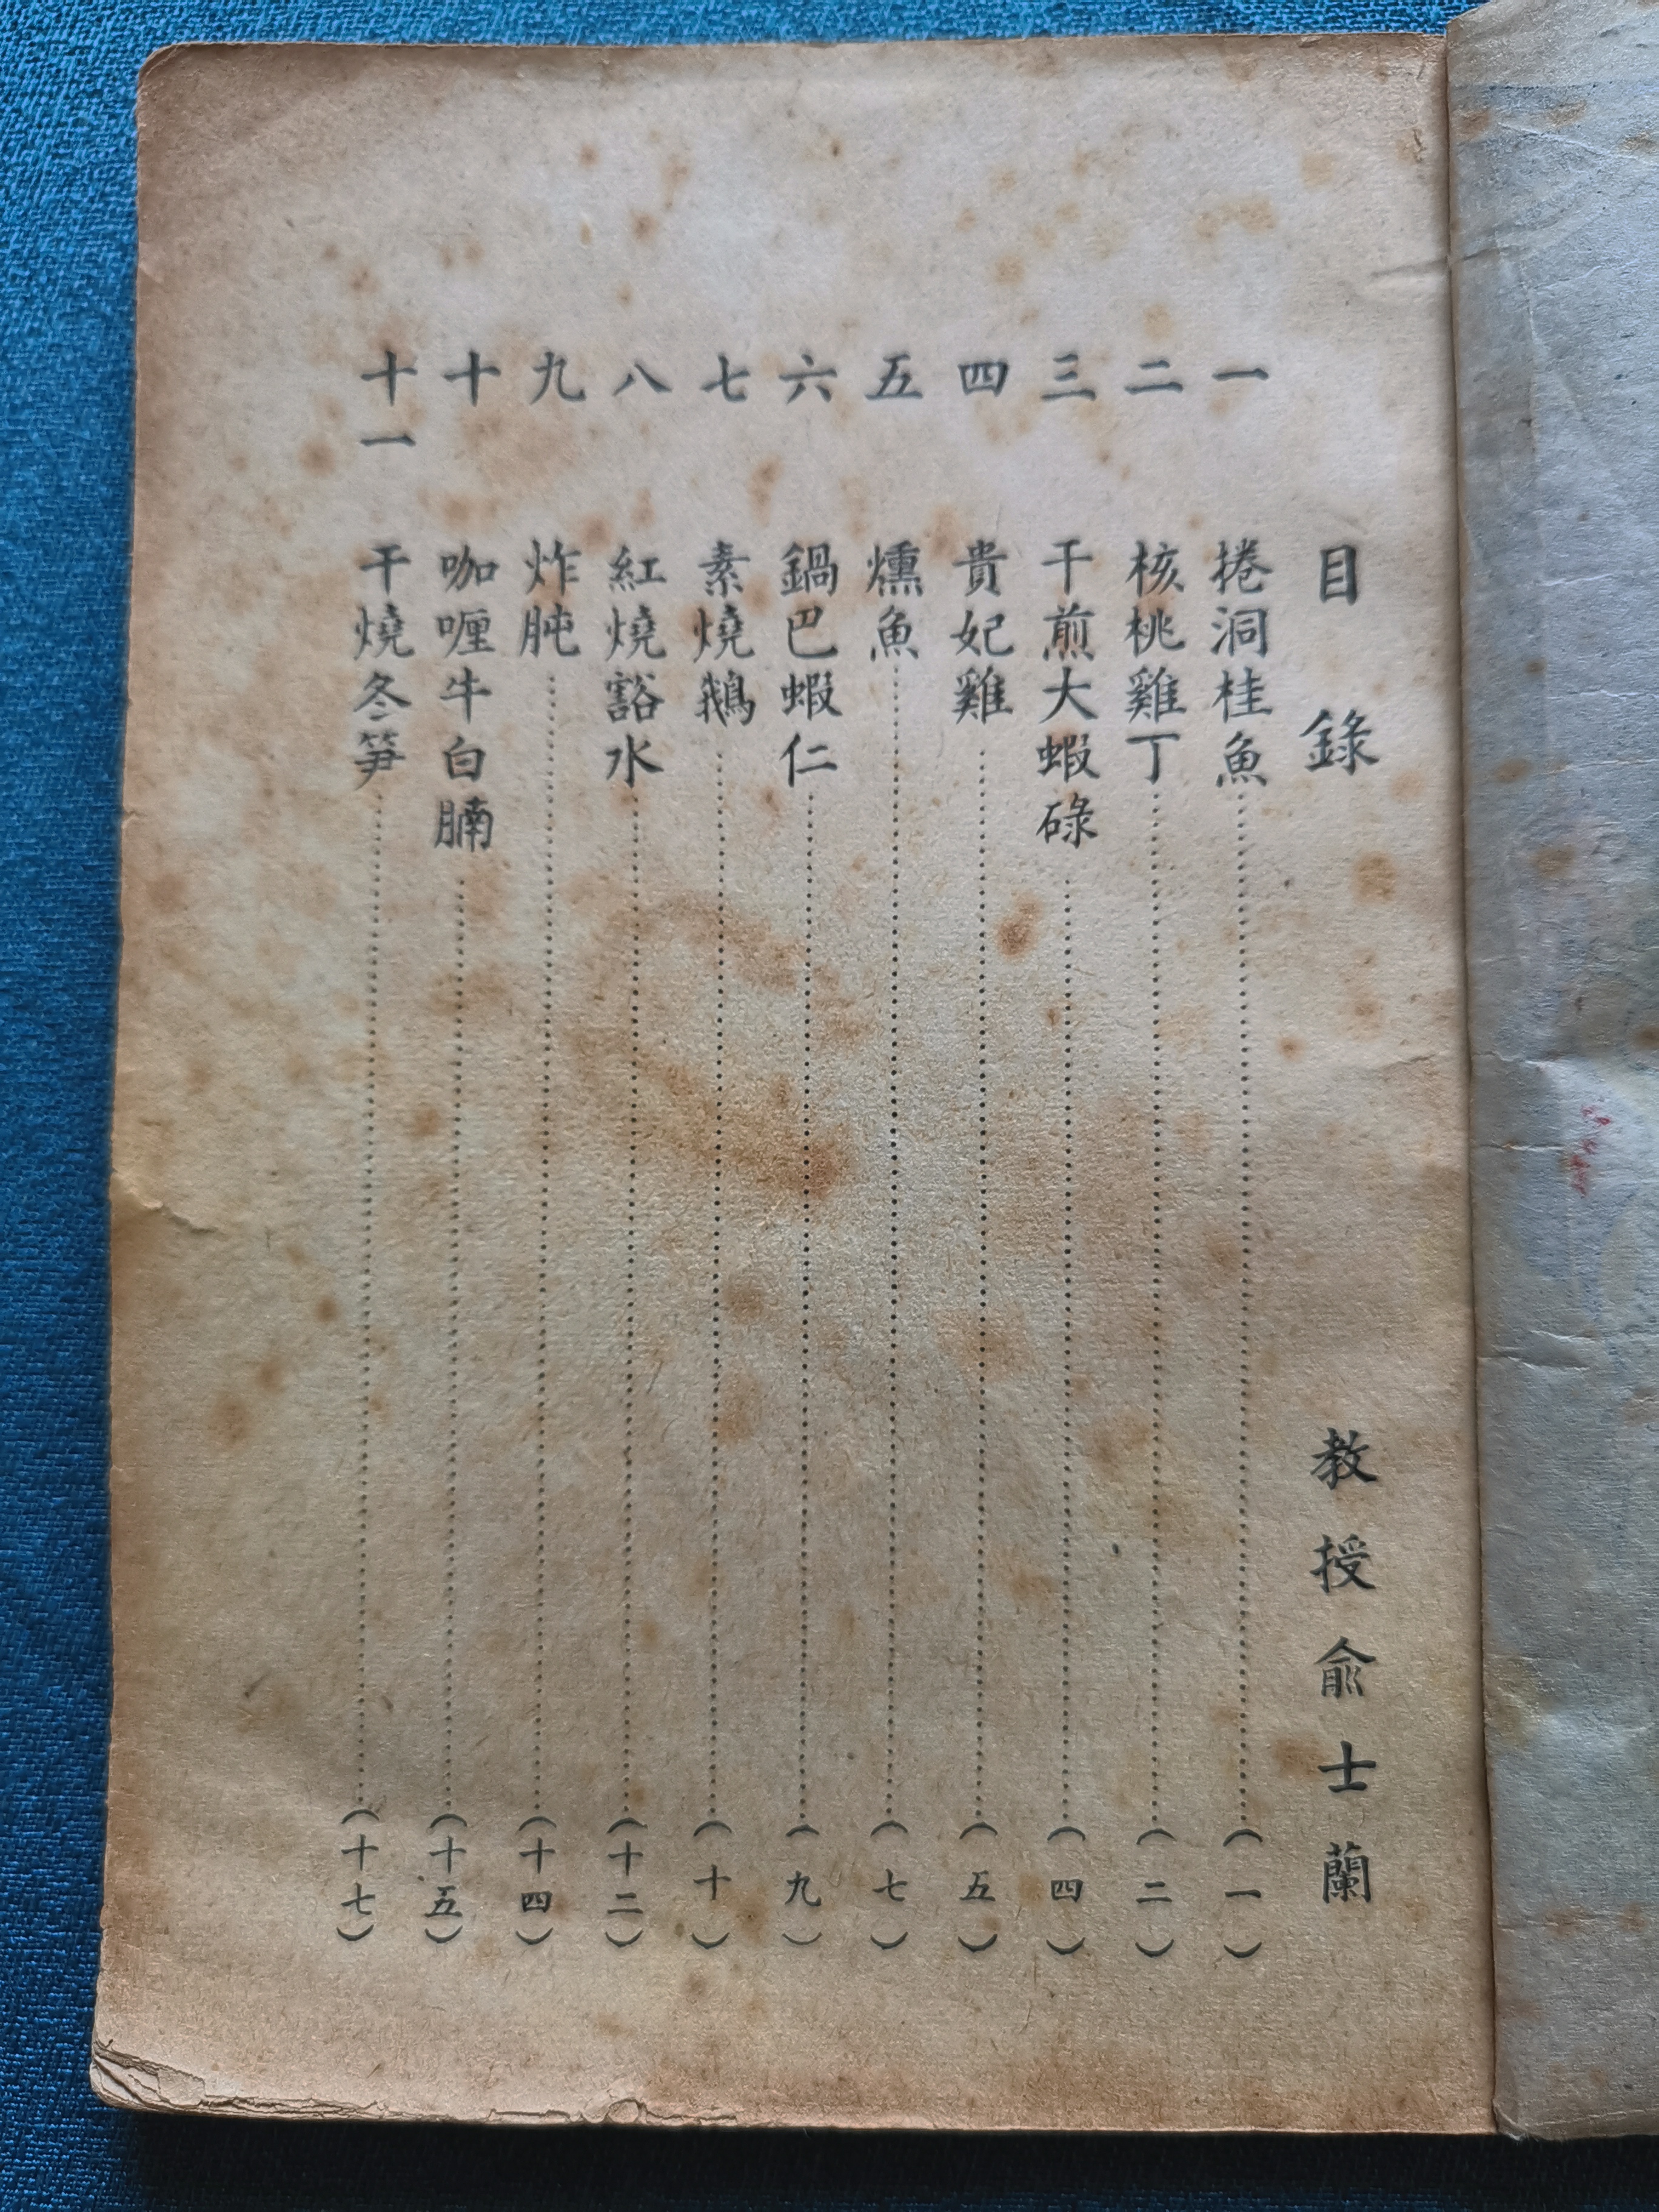 目錄 教授俞士蘭
一 捲洞桂魚………(一)
二 核桃雞丁………(二)
三 干煎大蝦碌………(四)
四 貴妃雞………(五)
五 燻魚………(七)
六 鍋巴蝦仁………(九)
七 素燒鵝………(十)
八 紅燒豁水………(十二)
九 炸肫………(十四)
十 咖喱牛白腩………(十五)
十一 干燒冬笋………(十七)